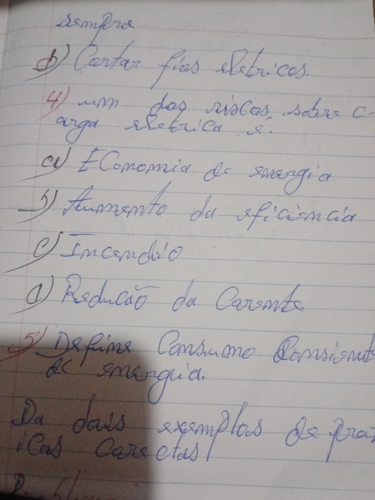 sempre
d) Cortar fios eletricos.
4) um dos riscos sobre c-
arga eletrica é.
a) Economia de energia
b) Aumento da eficiência
c) Incendio
d) Redução da Corente
5) Define Consumo Consiente
de energia.
Da dois exemplos de prat
icas corectas